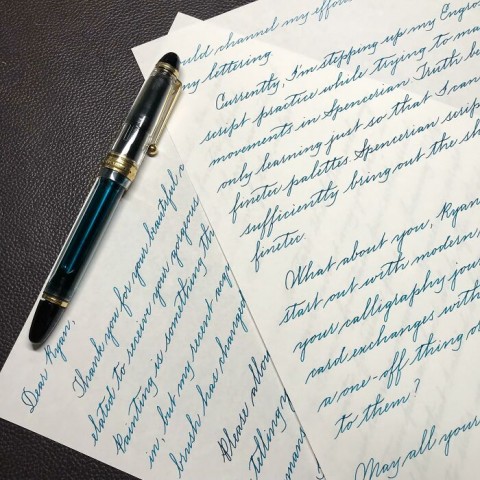 uld channel my effor
my lettering
Currently, I'm stepping up my Engros
script practice while trying to ma
movements in Spencerian. Truth be
only learning just so that I can
finetec palettes. Spencerian scrip
sufficiently bring out the sh
finetec.
What about you, Ryan
start out with modern
your calligraphy jour
card exchanges with
a one-off thing or
to them?
May all your
Dear Ryan,
Thank you for your beautiful c
elated to receive your gorgeous
Painting is something th
in, but my recent acqu
brush has changed
Please allow
tellingy
many